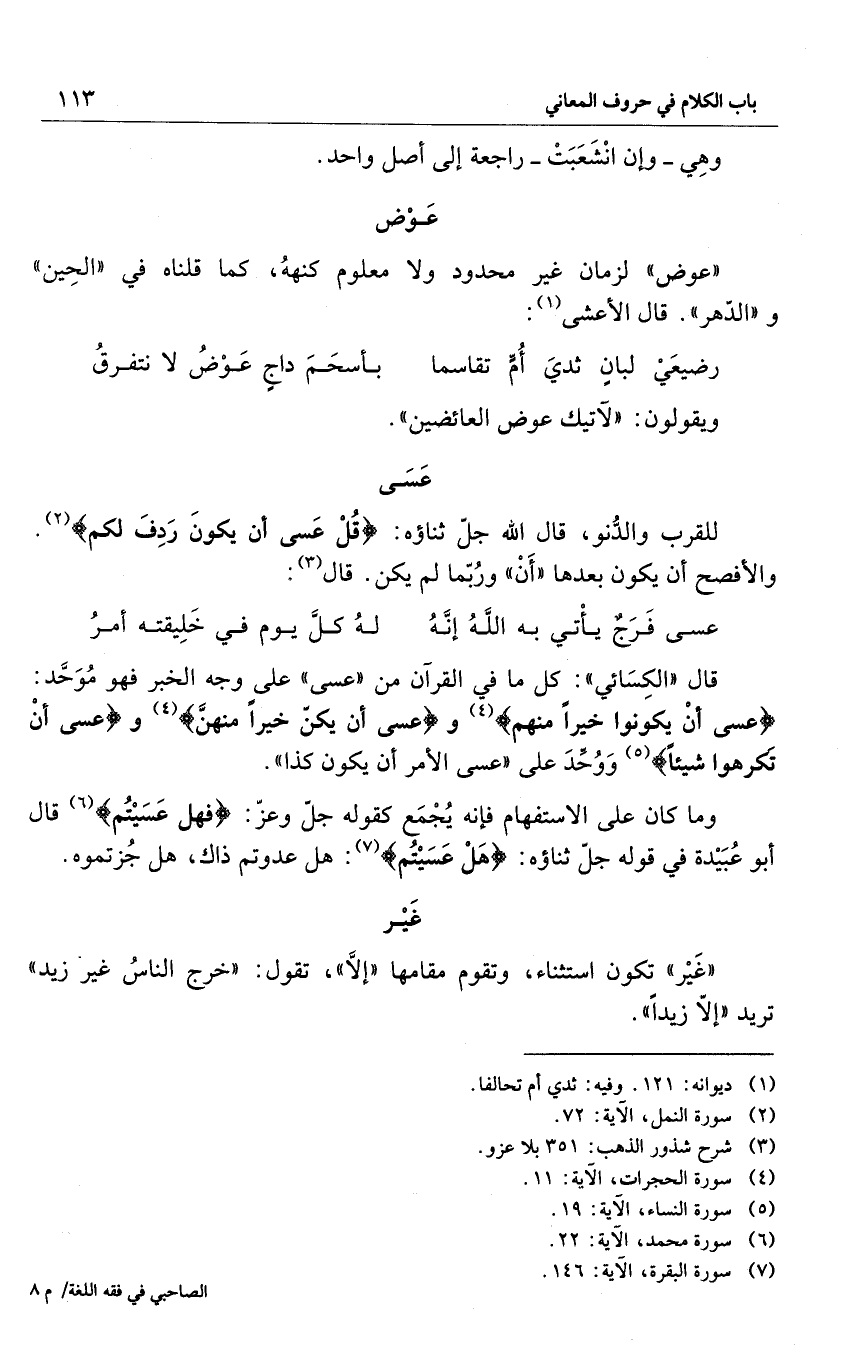 باب الكلام في حروف المعاني ١١٣
وهِي - وإن انْشَعَبَتْ - راجعة إلى أصل واحد.
عَـوْض
«عوض» لزمان غير محدود ولا معلوم كنههُ، كما قلناه في «الحِين»
و «الدّهر». قال الأعشى(١):
رضيعَيْ لبانٍ ثديَ أُمٍّ تقاسما بـأسحَـمَ داجٍ عَـوْضُ لا نتفـرقُ
ويقولون: «لآتيك عوض العائضين».
عَسَـى
للقرب والدُّنو، قال الله جلّ ثناؤه: ﴿قُلْ عَسى أن يكونَ رَدِفَ لكم﴾(٢).
والأفصح أن يكون بعدها «أَنْ» ورُبّما لم يكن. قال(٣):
عسـى فَـرَجٌ يـأْتـي بـه اللَّـهُ إنَّـهُ لـهُ كـلَّ يـوم فـي خَلِيقتـه أمـرُ
قال «الكِسَائي»: كل ما في القرآن من «عسى» على وجه الخبر فهو مُوَحَّد:
﴿عسى أنْ يكونوا خيراً منهم﴾(٤) و ﴿عسى أن يكنّ خيراً منهنَّ﴾(٤) و ﴿عسى أنْ
تَكرهوا شيئاً﴾(٥) وَوُحِّدَ على «عسى الأمر أن يكون كذا».
وما كان على الاستفهام فإنه يُجْمَع كقوله جلّ وعزّ: ﴿فهل عَسَيْتُم﴾(٦) قال
أبو عُبَيْدة في قوله جلّ ثناؤه: ﴿هَلْ عَسَيْتُم﴾(٧): هل عدوتم ذاك، هل جُزتموه.
غَيْـر
«غَيْر» تكون استثناء، وتقوم مقامها «إلاَّ»، تقول: «خرج الناسُ غير زيد»
تريد «إلاّ زيداً».
(١) ديوانه: ١٢١. وفيه: ثدي أم تحالفا.
(٢) سورة النمل، الآية: ٧٢.
(٣) شرح شذور الذهب: ٣٥١ بلا عزو.
(٤) سورة الحجرات، الآية: ١١.
(٥) سورة النساء، الآية: ١٩.
(٦) سورة محمد، الآية: ٢٢.
(٧) سورة البقرة، الآية: ١٤٦.
الصاحبي في فقه اللغة/ م ٨